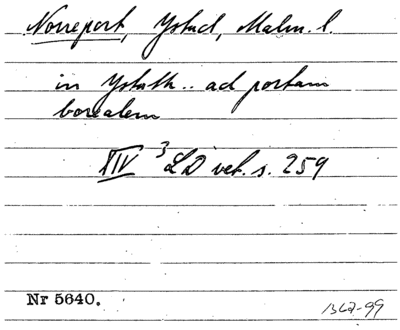 Norreport, Ystad, Malm. l.
in Ystath.. ad portam
borealem
XIV 3 LD vet. s. 259
Nr 5640.
1362-99